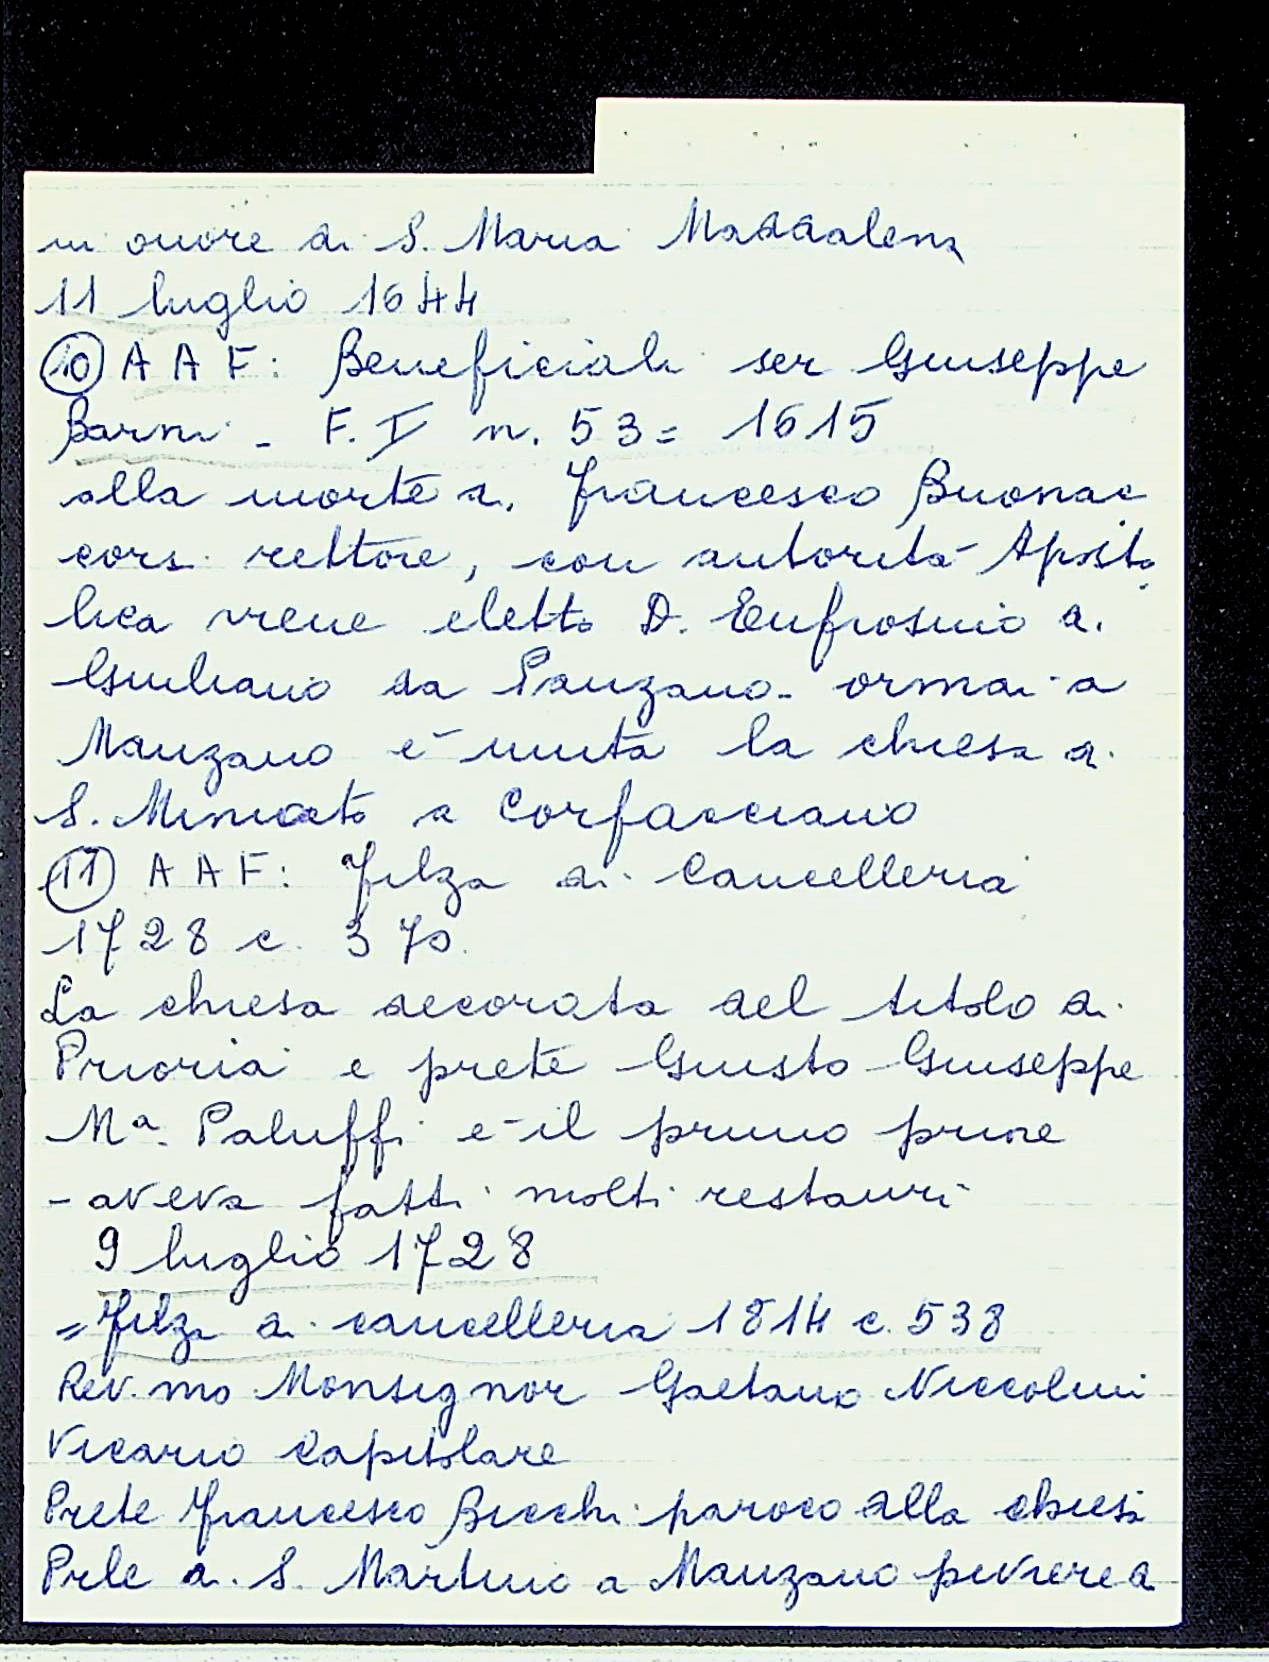 in onore di S. Maria Maddalena
11 luglio 1644
(10) A A F: Beneficiali ser Giuseppe
Barni - F. I n. 53 = 1615
alla morte di Francesco Buonac
corsi rettore, con autorità Aposto
lica viene eletto D. Eufrosino di
Giuliano da Panzano - ormai a
Manzano è unita la chiesa di
S. Miniato a Corfacciano
(11) A A F: Filza di Cancelleria
1728 c. 370
La chiesa decorata del titolo di
Prioria e prete Giusto Giuseppe
Mª. Paluffi è il primo priore
- aveva fatti molti restauri
9 luglio 1728
= Filza di cancelleria 1814 c. 538
Rev.mo Monsignor Gaetano Niccolini
Vicario Capitolare
Prete Francesco Bicchi paroco alla chiesa
Prle di S. Martino a Manzano piviere di